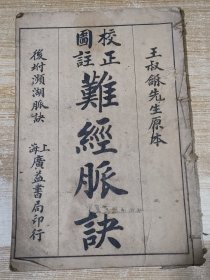 王叔龢先生原本
校正
圖註
難經脈訣
後坿瀕湖脈訣
上海
廣益書局印行